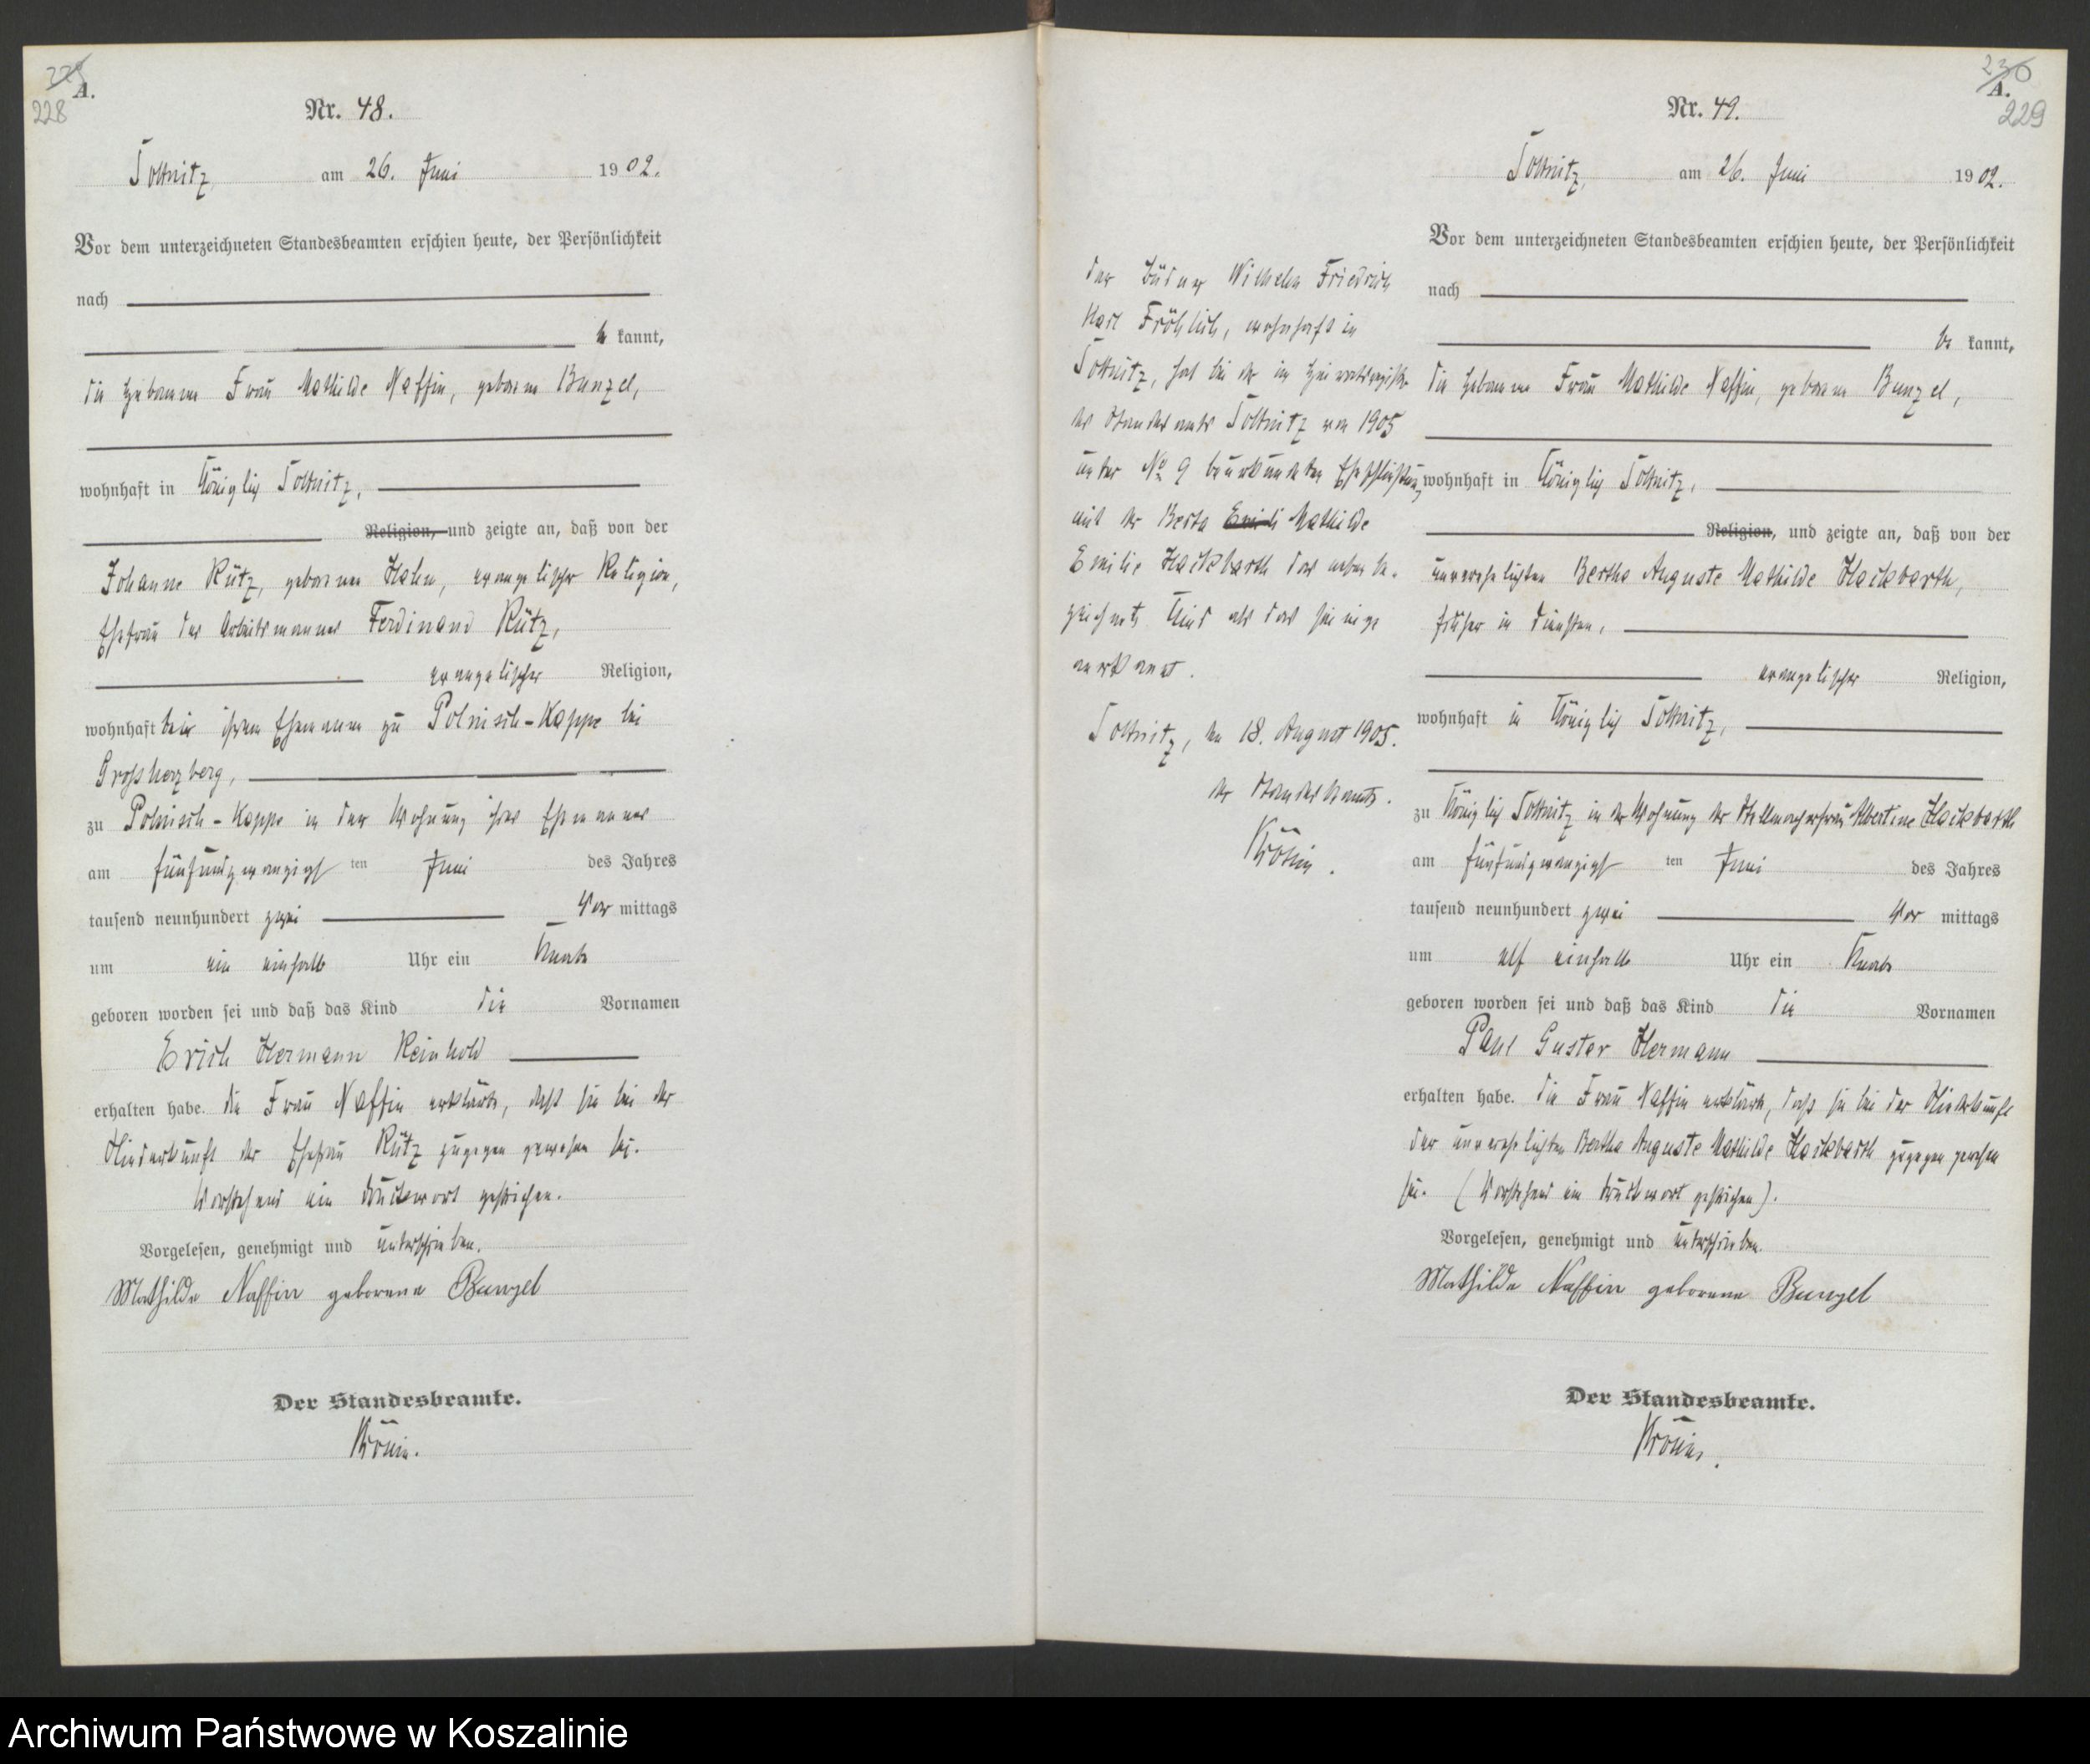 229
A.
228
Nr. 48.
Soltnitz, am 26. Juni 1902.
Vor dem unterzeichneten Standesbeamten erschien heute, der Persönlichkeit
nach
be kannt,
die Hebamme Frau Mathilde Naffin, geborene Bunzel,
wohnhaft in Königlich Soltnitz,
Religion, und zeigte an, daß von der
Johanne Rütz, geborenen Hahn, evangelischer Religion,
Ehefrau des Arbeitsmannes Ferdinand Rütz,
evangelischer Religion,
wohnhaft bei ihrem Ehemanne zu Polnisch-Kappe bei
Grossherzberg,
zu Polnisch-Kappe in der Wohnung ihres Ehemannes
am fünfundzwanzigsten Juni des Jahres
tausend neunhundert zwei Vor mittags
um ein einhalb Uhr ein Knabe
geboren worden sei und daß das Kind die Vornamen
Erich Hermann Reinhold
erhalten habe. Die Frau Naffin erklärte, dass sie bei der
Niederkunft der Ehefrau Rütz zugegen gewesen sei.
Vorstehend ein Druckwort gestrichen.
Vorgelesen, genehmigt und unterschrieben.
Mathilde Naffin geborene Bunzel
Der Standesbeamte.
230
A.
229
Nr. 49.
Soltnitz, am 26. Juni 1902.
Vor dem unterzeichneten Standesbeamten erschien heute, der Persönlichkeit
nach
be kannt,
die Hebamme Frau Mathilde Naffin, geborene Bunzel,
wohnhaft in Königlich Soltnitz,
Religion, und zeigte an, daß von der
unverehelichten Bertha Auguste Mathilde Hackbarth,
früher in Diensten,
evangelischer Religion,
wohnhaft in Königlich Soltnitz,
zu Königlich Soltnitz in der Wohnung der Stellmacherfrau Albertine Hackbarth
am fünfundzwanzigsten Juni des Jahres
tausend neunhundert zwei Vor mittags
um elf einhalb Uhr ein Knabe
geboren worden sei und daß das Kind die Vornamen
Paul Gustav Hermann
erhalten habe. Die Frau Naffin erklärte, dass sie bei der Niederkunft
der unverehelichten Bertha Auguste Mathilde Hackbarth zugegen gewesen
sei. (Vorstehend ein Druckwort gestrichen).
Vorgelesen, genehmigt und unterschrieben.
Mathilde Naffin geborene Bunzel
Der Standesbeamte.
Der Büdner Wilhelm Friedrich
Karl Fröhlich, wohnhaft in
Soltnitz, hat bei der im Heiratsregister
des Standesamts Soltnitz von 1905
unter No 9 beurkundeten Eheschließung
mit der Berta Emili Mathilde
Emilie Hackbarth das neben be-
zeichnete Kind als das seinige
anerkannt.
Soltnitz, den 18. August 1905.
Der Standesbeamte.
Archiwum Państwowe w Koszalinie